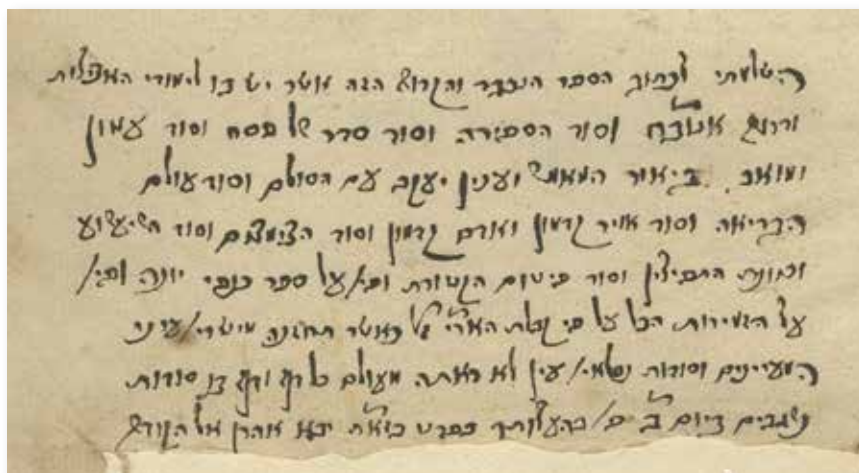 השלמתי לכתוב הספר הנכבד והקדוש הזה אשר יש בו לימודי האצלות
ודרוש אנ״בח וסוד הספירה וסוד סדר של פסח וסוד עמון
ומואב ביאור המאמ׳ וענין יעקב עם הסולם וסוד עולם
הבריאה וסוד אויר קדמון ואדם קדמון וסוד הצימצום וסוד השיעשוע
וכוונת התפילין וסוד פיטום הקטורת ופי׳ על ספר כנפי יונה ופי׳
על הזמירות הכל על פי קבלת האר״י ז״ל כאשר תחזנה מישרי׳ עיני
המעיינים וסודות נפלאי׳ עין לא ראתה מעולם כל קץ וקץ בו סודות
נשגבים ביום ב׳ ים׳ בהעלותך בפרט בזאת יבא אהרן אל הקודש